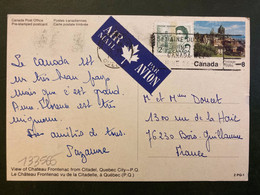 Canada Post Office
Pre-stamped postcard
Postes canadiennes
Carte postale préaffranchie
AIR MAIL
PAR AVION
Canada
8
Le Canada est
un très beau pays
mais que c'est grand.
Nous
mignonne
amitiés à tous.
Suzanne
133565
Mr et Mme Doucet
1300 rue de la Haie
76230 Bois-Guillaume
France
View of Château Frontenac from Citadel, Quebec City—P.Q.
Le Château Frontenac vu de la Citadelle, à Québec (P.Q.)